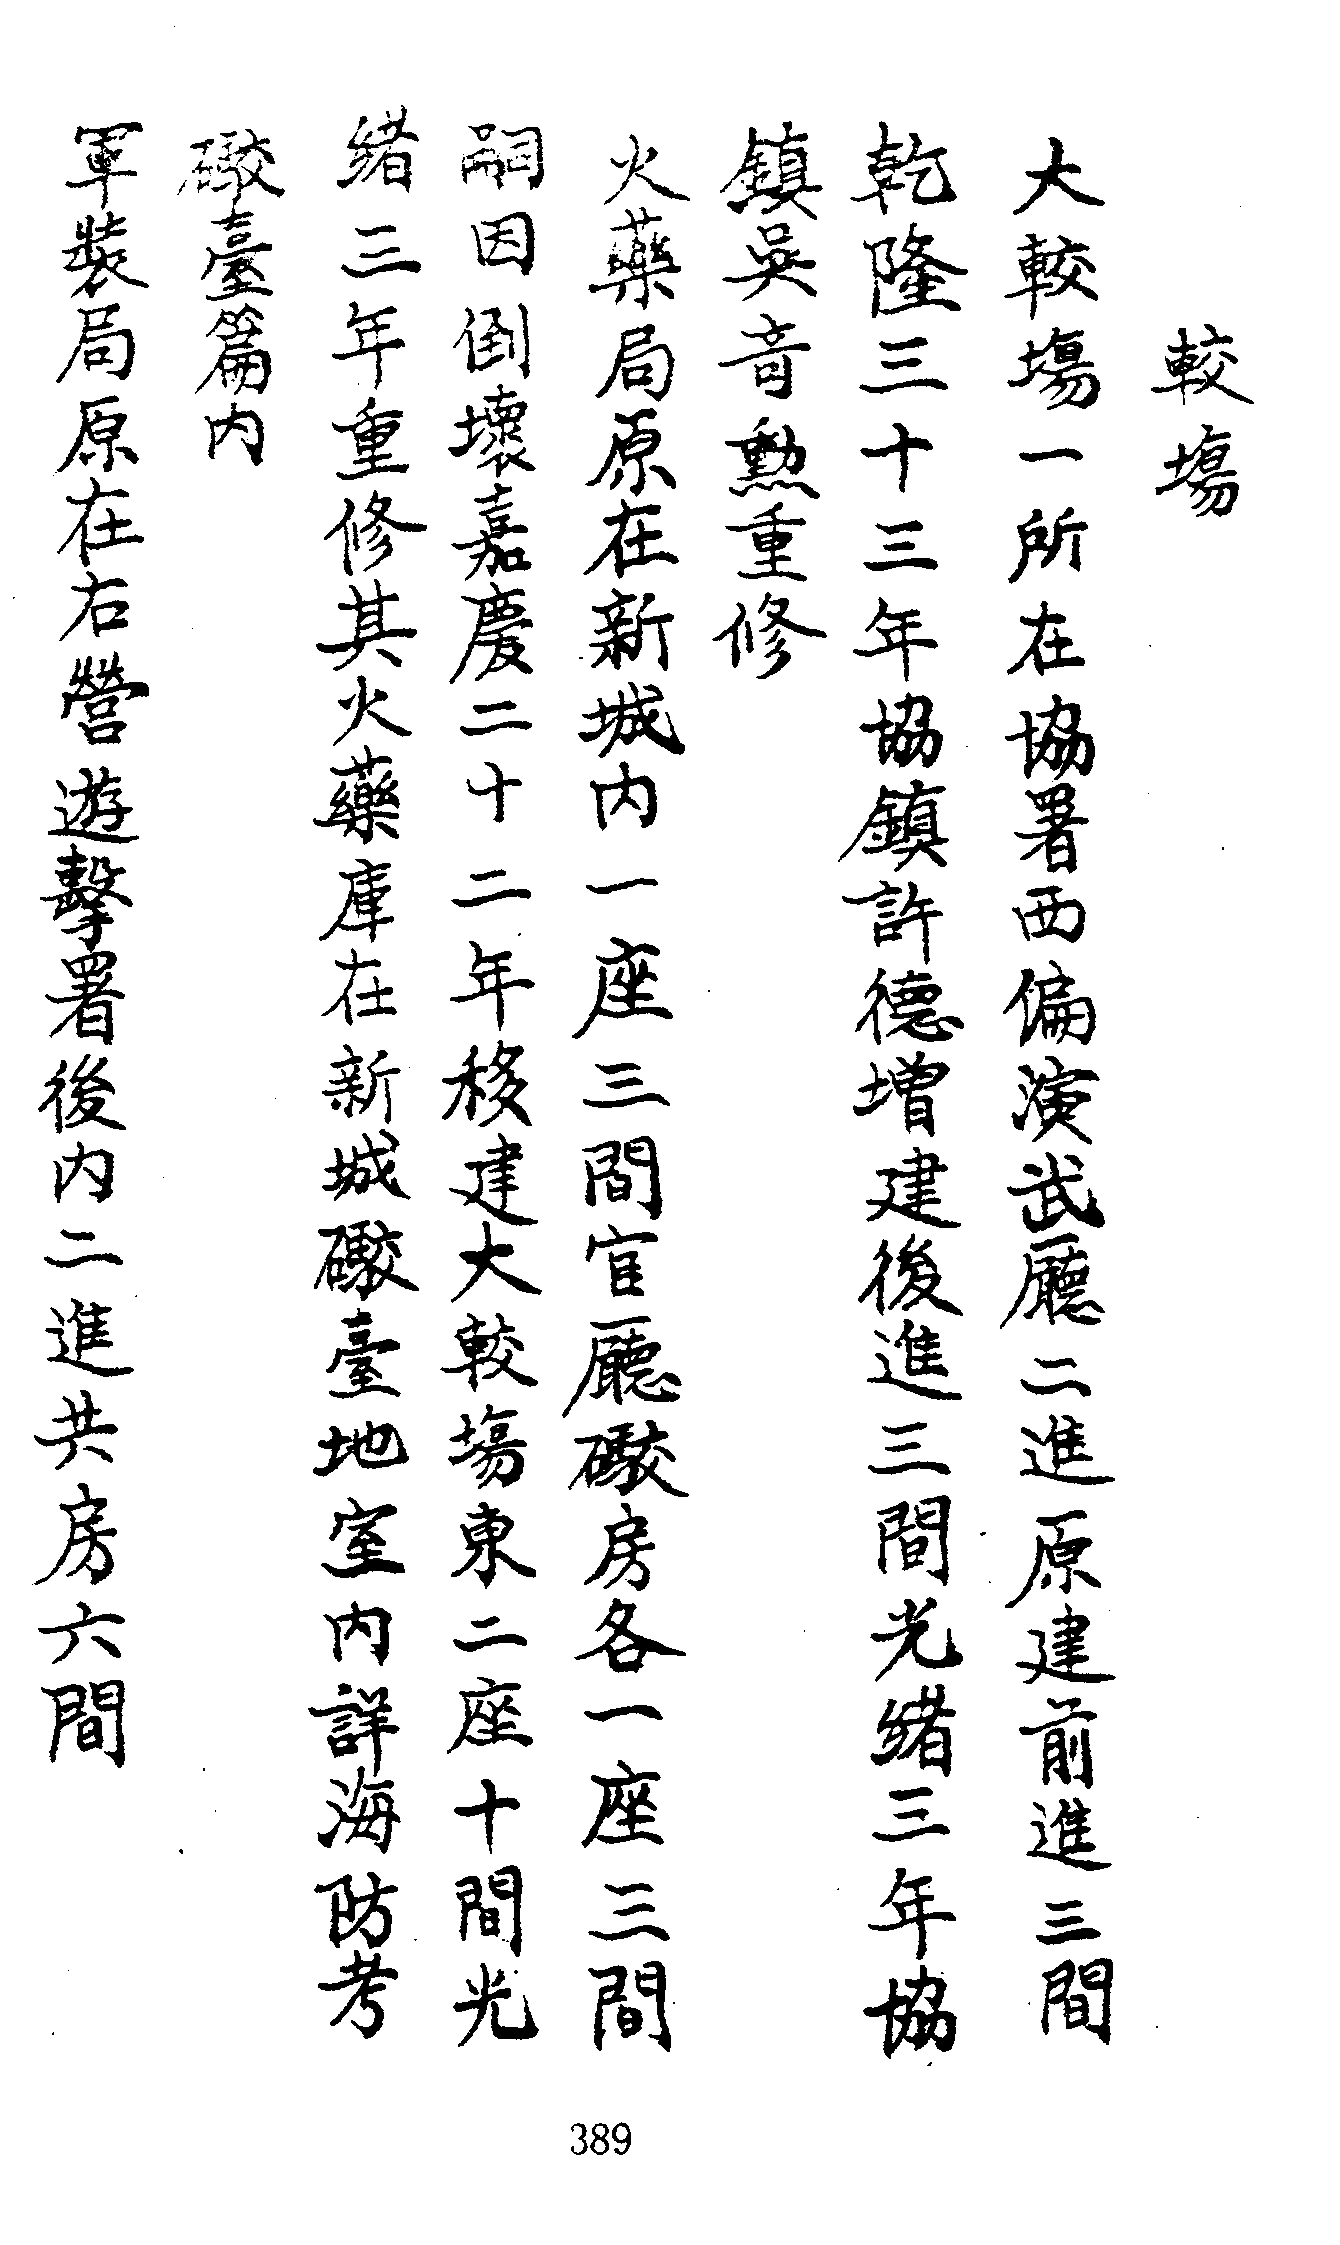 較塲
大較塲一所在協署西偏演武廳二進原建前進三間
乾隆三十三年協鎮許德增建後進三間光緒三年協
鎮吳奇勳重修
火藥局原在新城内一座三間官廳礮房各一座三間
嗣因倒壞嘉慶二十二年移建大較塲東二座十間光
緒三年重修其火藥庫在新城礮臺地室内詳海防考
礮臺篇内
軍裝局原在右營遊擊署後内二進共房六間
389